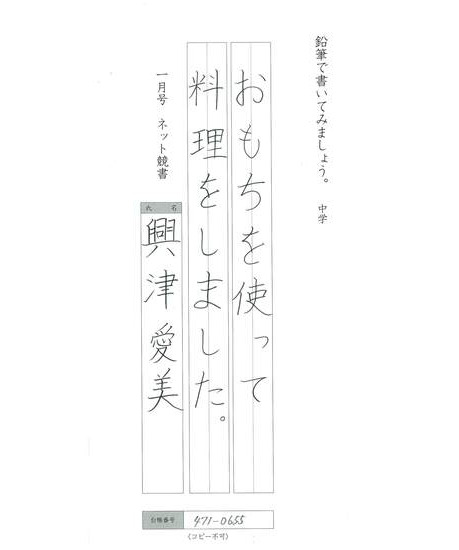 鉛筆で書いてみましょう。 中学
おもちを使って
料理をしました。
一月号 ネット競書
氏名
興津愛美
台帳番号 471-0655
(コピー不可)